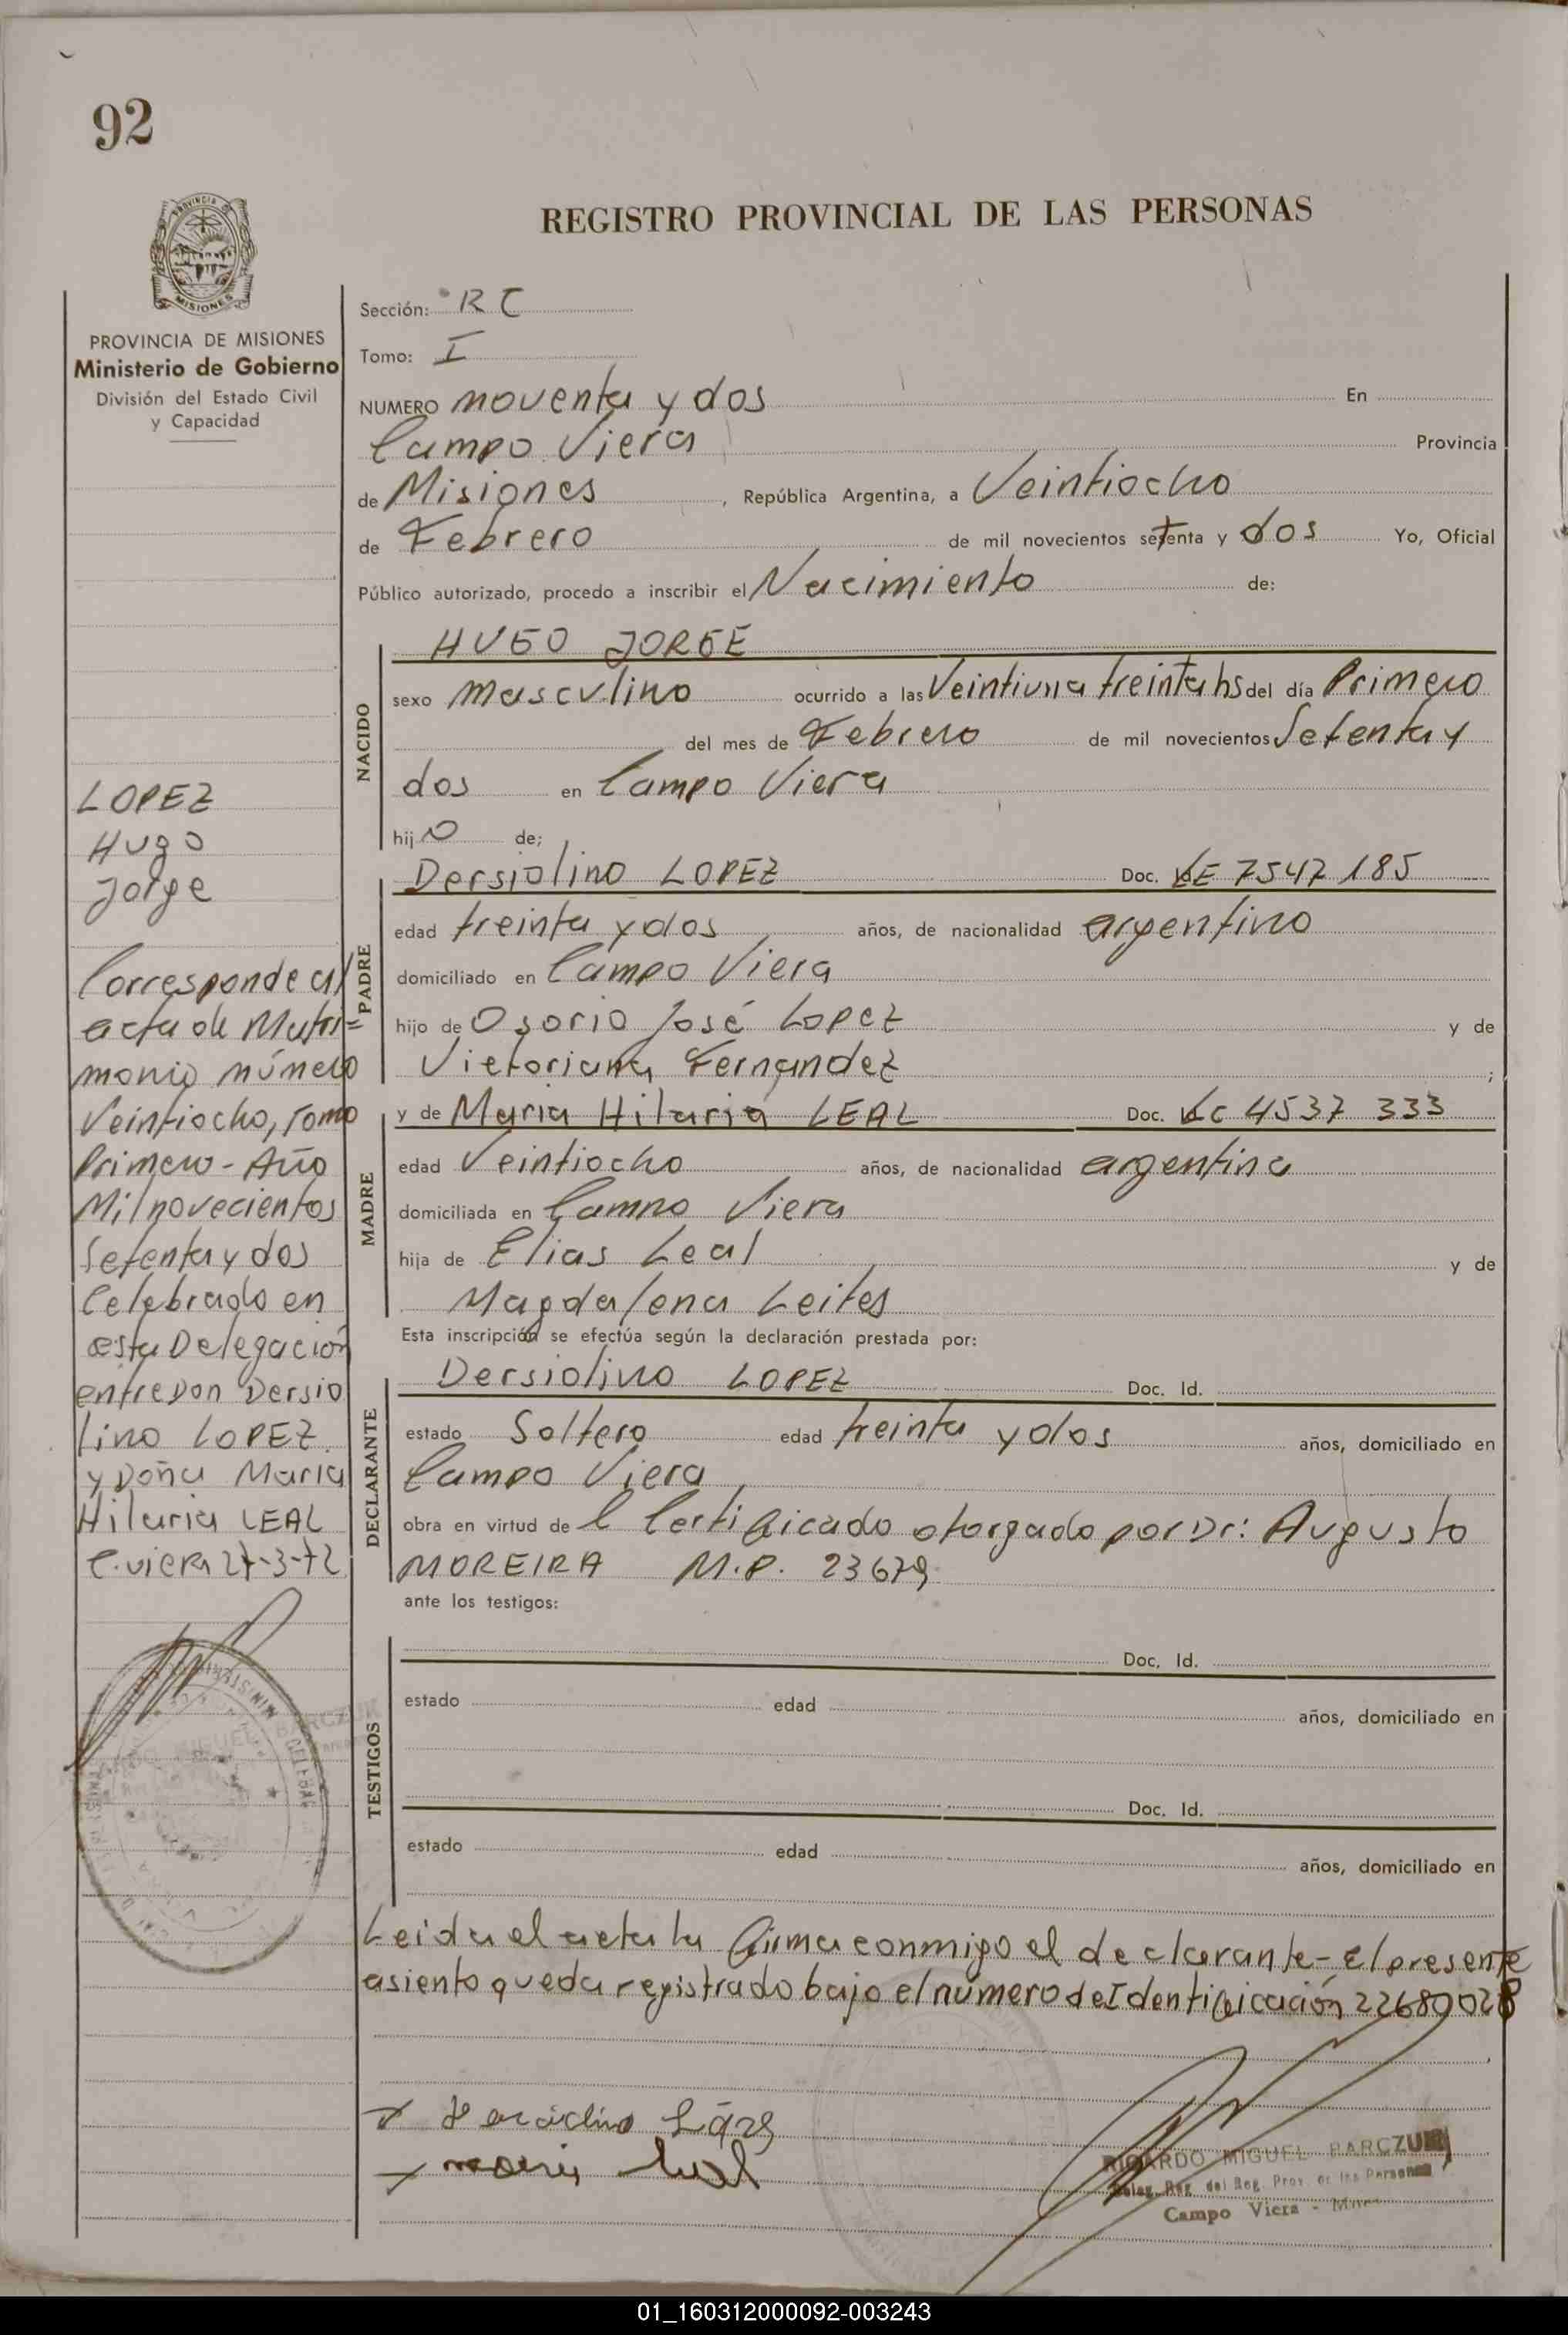 92
REGISTRO PROVINCIAL DE LAS PERSONAS
PROVINCIA DE MISIONES
Ministerio de Gobierno
División del Estado Civil
y Capacidad
LOPEZ
Hugo
Jorge
Corresponde al
acta de Matri=
monio número
Veintiocho, Tomo
Primero - Año
Mil novecientos
Setenta y dos
Celebrado en
esta Delegación
entre Don Dersio
lino LOPEZ
y Doña Maria
Hilaria LEAL
C. Viera 27-3-72
Sección: RC
Tomo: I
NUMERO noventa y dos En
Campo Viera Provincia
de Misiones, República Argentina, a Veintiocho
de Febrero de mil novecientos setenta y dos Yo, Oficial
Público autorizado, procedo a inscribir el Nacimiento de:
NACIDO
HUGO JORGE
sexo masculino ocurrido a las Veintiuna treinta hs del día Primero
del mes de Febrero de mil novecientos Setenta y
dos en Campo Viera
hijo de;
PADRE
Dersiolino LOPEZ Doc. LE 7547185
edad treinta y dos años, de nacionalidad argentino
domiciliado en Campo Viera
hijo de Osorio José Lopez y de
Victoriana Fernandez ;
MADRE
y de Maria Hilaria LEAL Doc. LC 4537 333
edad Veintiocho años, de nacionalidad argentina
domiciliada en Campo Viera
hija de Elias Leal y de
Magdalena Leites
Esta inscripción se efectúa según la declaración prestada por:
DECLARANTE
Dersiolino LOPEZ Doc. Id.
estado Soltero edad treinta y dos años, domiciliado en
Campo Viera
obra en virtud del Certificado otorgado por Dr: Augusto
MOREIRA M.P. 23679
ante los testigos:
TESTIGOS
Doc. Id.
estado edad años, domiciliado en
Doc. Id.
estado edad años, domiciliado en
Leida el acta la firma conmigo el declarante - El presente
asiento queda registrado bajo el número de Identificación 22680028
RICARDO MIGUEL BARCZUK
Deleg. Reg. del Reg. Prov. de las Personas
Campo Viera -
01_160312000092-003243